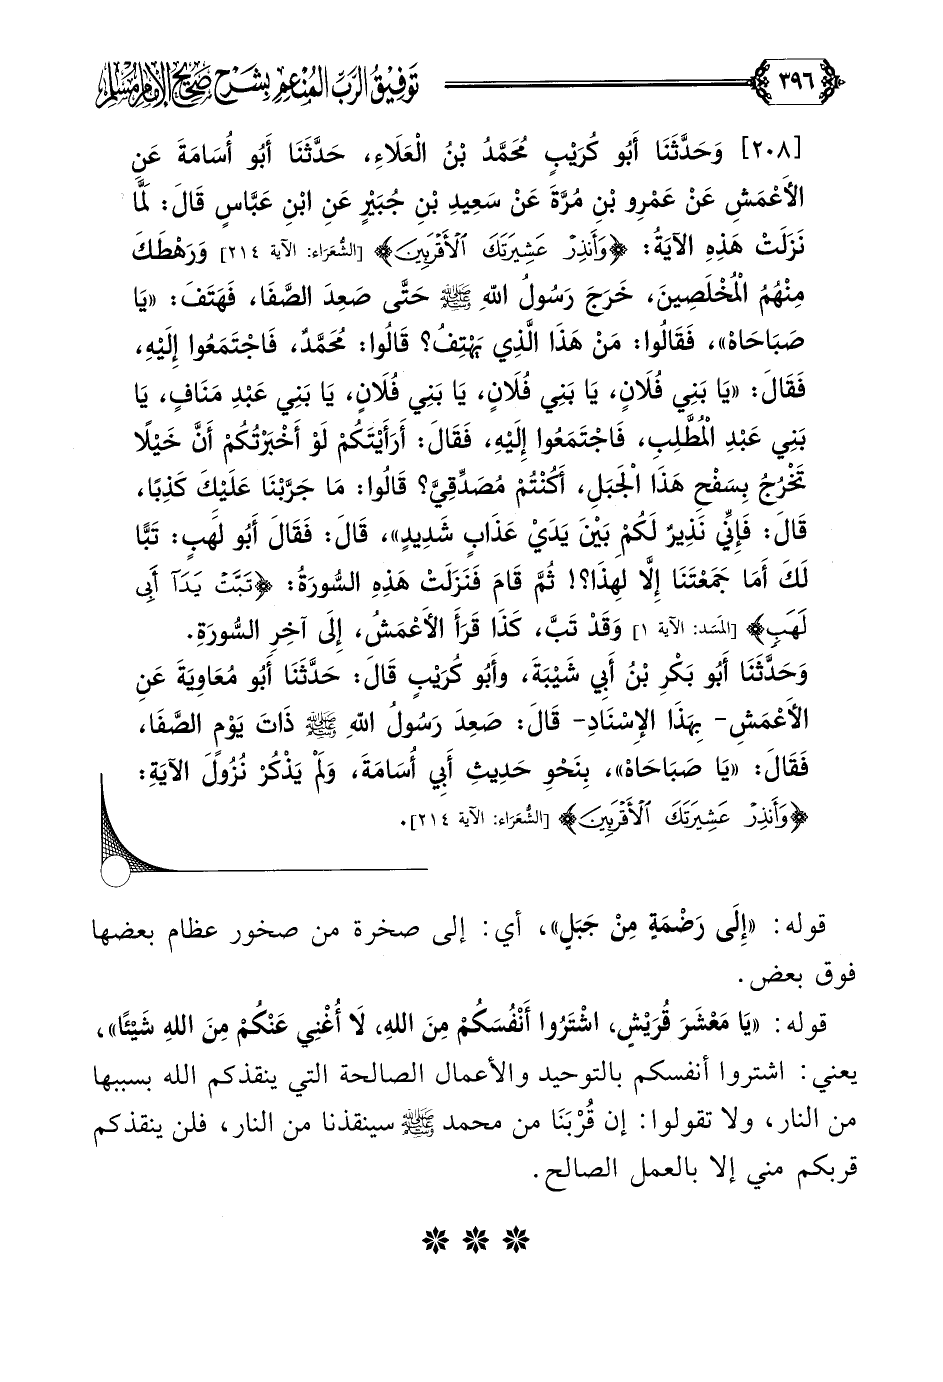 ٣٩٦ تَوفِيقُ الرَبِّ المُنْعِمِ بِشَرْحِ صَحِيحِ الإِمَامِ مُسْلِم
[٢٠٨] وَحَدَّثَنَا أَبُو كُرَيْبٍ مُحَمَّدُ بْنُ الْعَلَاءِ، حَدَّثَنَا أَبُو أُسَامَةَ عَنِ
الأَعْمَشِ عَنْ عَمْرِو بْنِ مُرَّةَ عَنْ سَعِيدِ بْنِ جُبَيْرٍ عَنِ ابْنِ عَبَّاسٍ قَالَ: لَمَّا
نَزَلَتْ هَذِهِ الآيَةُ: ﴿وَأَنذِرْ عَشِيرَتَكَ ٱلْأَقْرَبِينَ﴾ [الشُّعَرَاء: الآية ٢١٤] وَرَهْطَكَ
مِنْهُمُ الْمُخْلَصِينَ، خَرَجَ رَسُولُ اللهِ ﷺ حَتَّى صَعِدَ الصَّفَا، فَهَتَفَ: «يَا
صَبَاحَاهْ»، فَقَالُوا: مَنْ هَذَا الَّذِي يَهْتِفُ؟ قَالُوا: مُحَمَّدٌ، فَاجْتَمَعُوا إِلَيْهِ،
فَقَالَ: «يَا بَنِي فُلَانٍ، يَا بَنِي فُلَانٍ، يَا بَنِي فُلَانٍ، يَا بَنِي عَبْدِ مَنَافٍ، يَا
بَنِي عَبْدِ الْمُطَّلِبِ، فَاجْتَمَعُوا إِلَيْهِ، فَقَالَ: أَرَأَيْتَكُمْ لَوْ أَخْبَرْتُكُمْ أَنَّ خَيْلًا
تَخْرُجُ بِسَفْحِ هَذَا الْجَبَلِ، أَكُنْتُمْ مُصَدِّقِيَّ؟ قَالُوا: مَا جَرَّبْنَا عَلَيْكَ كَذِبًا،
قَالَ: فَإِنِّي نَذِيرٌ لَكُمْ بَيْنَ يَدَيْ عَذَابٍ شَدِيدٍ»، قَالَ: فَقَالَ أَبُو لَهَبٍ: تَبًّا
لَكَ أَمَا جَمَعْتَنَا إِلَّا لِهَذَا؟! ثُمَّ قَامَ فَنَزَلَتْ هَذِهِ السُّورَةُ: ﴿تَبَّتْ يَدَآ أَبِى
لَهَبٍ﴾ [المَسَد: الآية ١] وَقَدْ تَبَّ، كَذَا قَرَأَ الأَعْمَشُ، إِلَى آخِرِ السُّورَةِ.
وَحَدَّثَنَا أَبُو بَكْرِ بْنُ أَبِي شَيْبَةَ، وأَبُو كُرَيْبٍ قَالَ: حَدَّثَنَا أَبُو مُعَاوِيَةَ عَنِ
الأَعْمَشِ- بِهَذَا الإِسْنَادِ- قَالَ: صَعِدَ رَسُولُ اللهِ ﷺ ذَاتَ يَوْمٍ الصَّفَا،
فَقَالَ: «يَا صَبَاحَاهْ»، بِنَحْوِ حَدِيثِ أَبِي أُسَامَةَ، وَلَمْ يَذْكُرْ نُزُولَ الآيَةِ:
﴿وَأَنذِرْ عَشِيرَتَكَ ٱلْأَقْرَبِينَ﴾ [الشُّعَرَاء: الآية ٢١٤].
قوله: «إِلَى رَضْمَةٍ مِنْ جَبَلٍ»، أي: إلى صخرة من صخور عظام بعضها
فوق بعض.
قوله: «يَا مَعْشَرَ قُرَيْشٍ، اشْتَرُوا أَنْفُسَكُمْ مِنَ اللهِ، لَا أُغْنِي عَنْكُمْ مِنَ اللهِ شَيْئًا»،
يعني: اشتروا أنفسكم بالتوحيد والأعمال الصالحة التي ينقذكم الله بسببها
من النار، ولا تقولوا: إن قُرْبَنَا من محمد ﷺ سينقذنا من النار، فلن ينقذكم
قربكم مني إلا بالعمل الصالح.